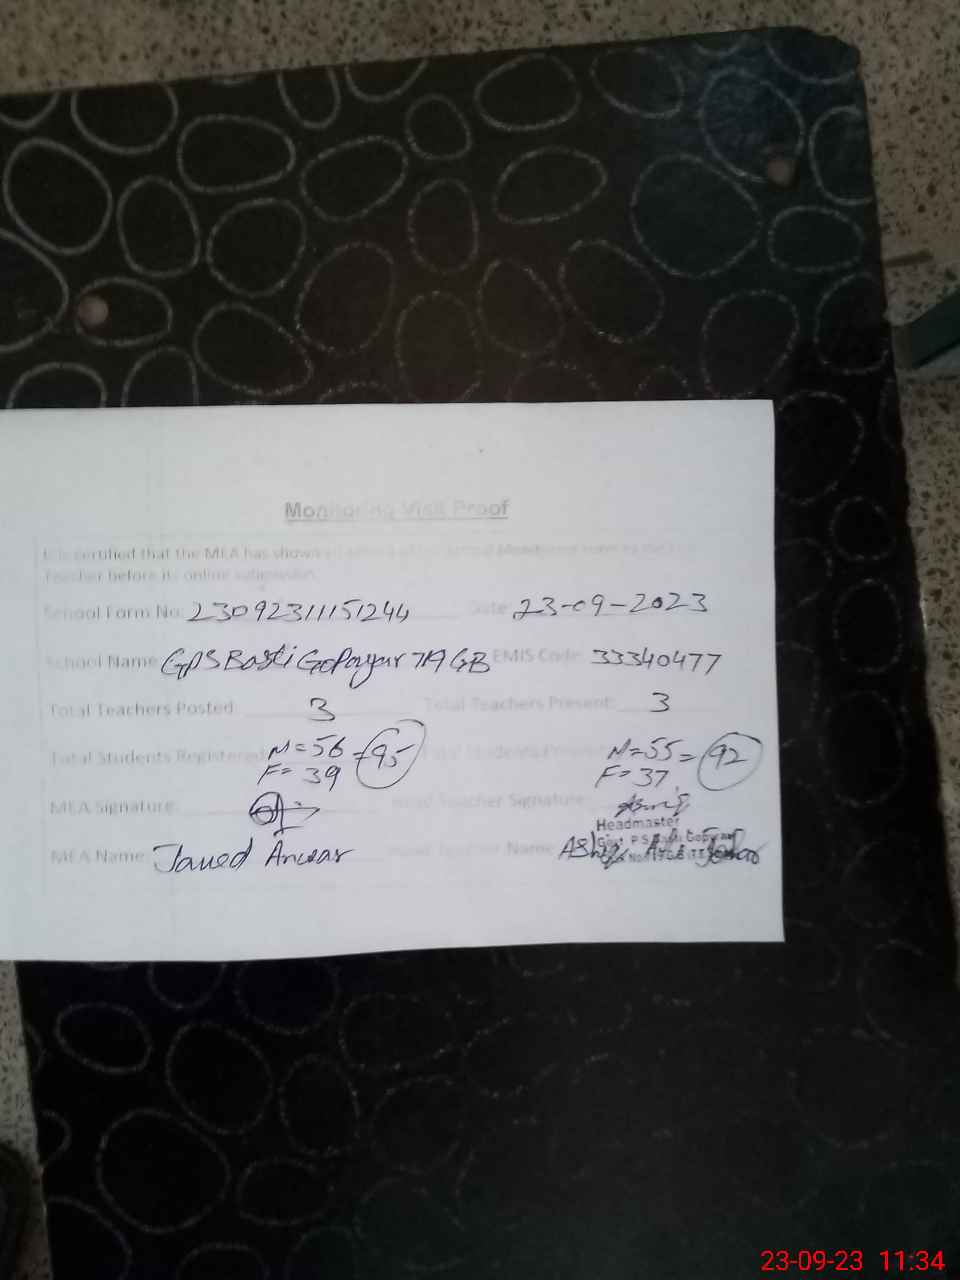 Monitoring Visit Proof
It is certified that the MEA has shown
Teacher before its online submission.
School Form No: 23092311151244 Date: 23-09-2023
School Name GPS Basti Gopayar 7A GB EMIS Code: 33340477
Total Teachers Posted 3 Total Teachers Present: 3
Total Students Registered M=56 F=39 =95 Total Students Present M=55 F=37 =92
MEA Signature: Head Teacher Signature:
Headmaster
MEA Name: Javed Anwar Head Teacher Name: Ashiq
23-09-23 11:34